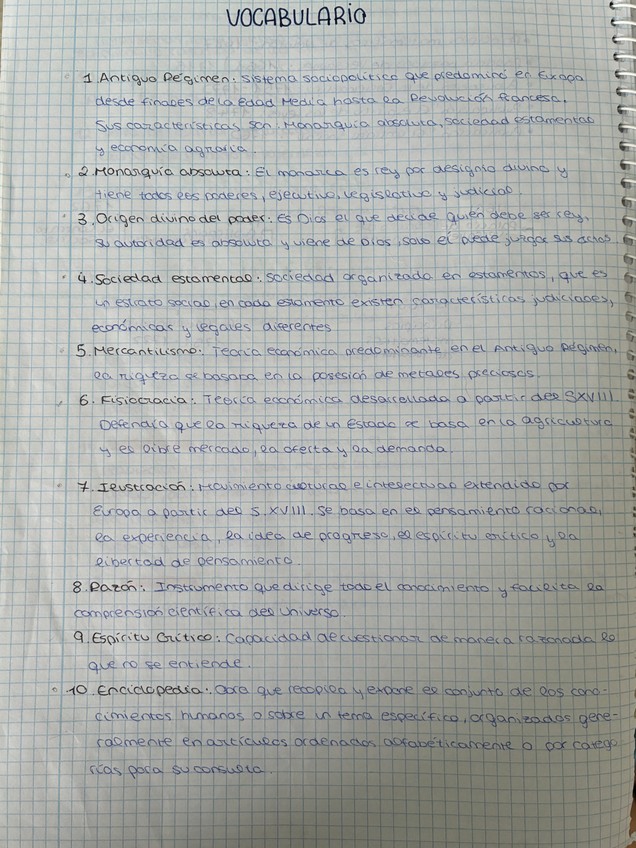 VOCABULARIO
1 Antiguo Régimen: Sistema sociopolítico que predominó en Europa
desde finales de la Edad Media hasta la Revolución francesa.
Sus características son: Monarquía absoluta, sociedad estamental
y economía agraria.
2. Monarquía absoluta: El monarca es rey por designio divino y
tiene todos los poderes, ejecutivo, legislativo y judicial.
3. Origen divino del poder: Es Dios el que decide quién debe ser rey,
su autoridad es absoluta y viene de Dios, solo el puede juzgar sus actos.
4. Sociedad estamental: Sociedad organizada en estamentos, que es
un estrato social, en cada estamento existen características judiciales,
económicas y legales diferentes
5. Mercantilismo: Teoría económica predominante en el Antiguo Régimen,
la riqueza se basaba en la posesión de metales preciosos.
6. Fisiocracia: Teoría económica desarrollada a partir del SXVIII.
Defendía que la riqueza de un Estado se basa en la agricultura
y el libre mercado, la oferta y la demanda.
7. Ilustración: Movimiento cultural e intelectual extendido por
Europa a partir del S.XVIII. Se basa en el pensamiento racional,
la experiencia, la idea de progreso, el espíritu crítico y la
libertad de pensamiento.
8. Razón: Instrumento que dirige todo el conocimiento y facilita la
comprensión científica del Universo.
9. Espíritu Crítico: Capacidad de cuestionar de manera razonada lo
que no se entiende.
10. Enciclopedia: Obra que recopila y expone el conjunto de los cono-
cimientos humanos o sobre un tema específico, organizados gene-
ralmente en artículos ordenados alfabéticamente o por catego
rías para su consulta.